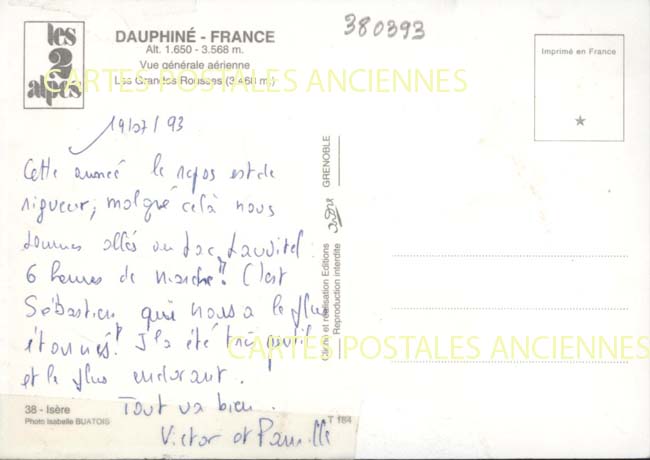 les
2
alpes
DAUPHINÉ - FRANCE
Alt. 1.650 - 3.568 m.
Vue générale aérienne
Les Grandes Rousses (3.468 m.)
380393
Imprimé en France
CARTES POSTALES ANCIENNES
19/07/93
Cette année le repos est de
rigueur, malgré celà nous
sommes allés au Lac Lauvitel
6 heures de marche! C'est
Sébastien qui nous a le plus
étonnés! Il a été très
et le plus endurant.
Tout va bien.
Victor et
GRENOBLE
Cliché et réalisation Editions
Reproduction interdite
CARTES POSTALES ANCIENNES
38 - Isère
Photo Isabelle BUATOIS
T 184